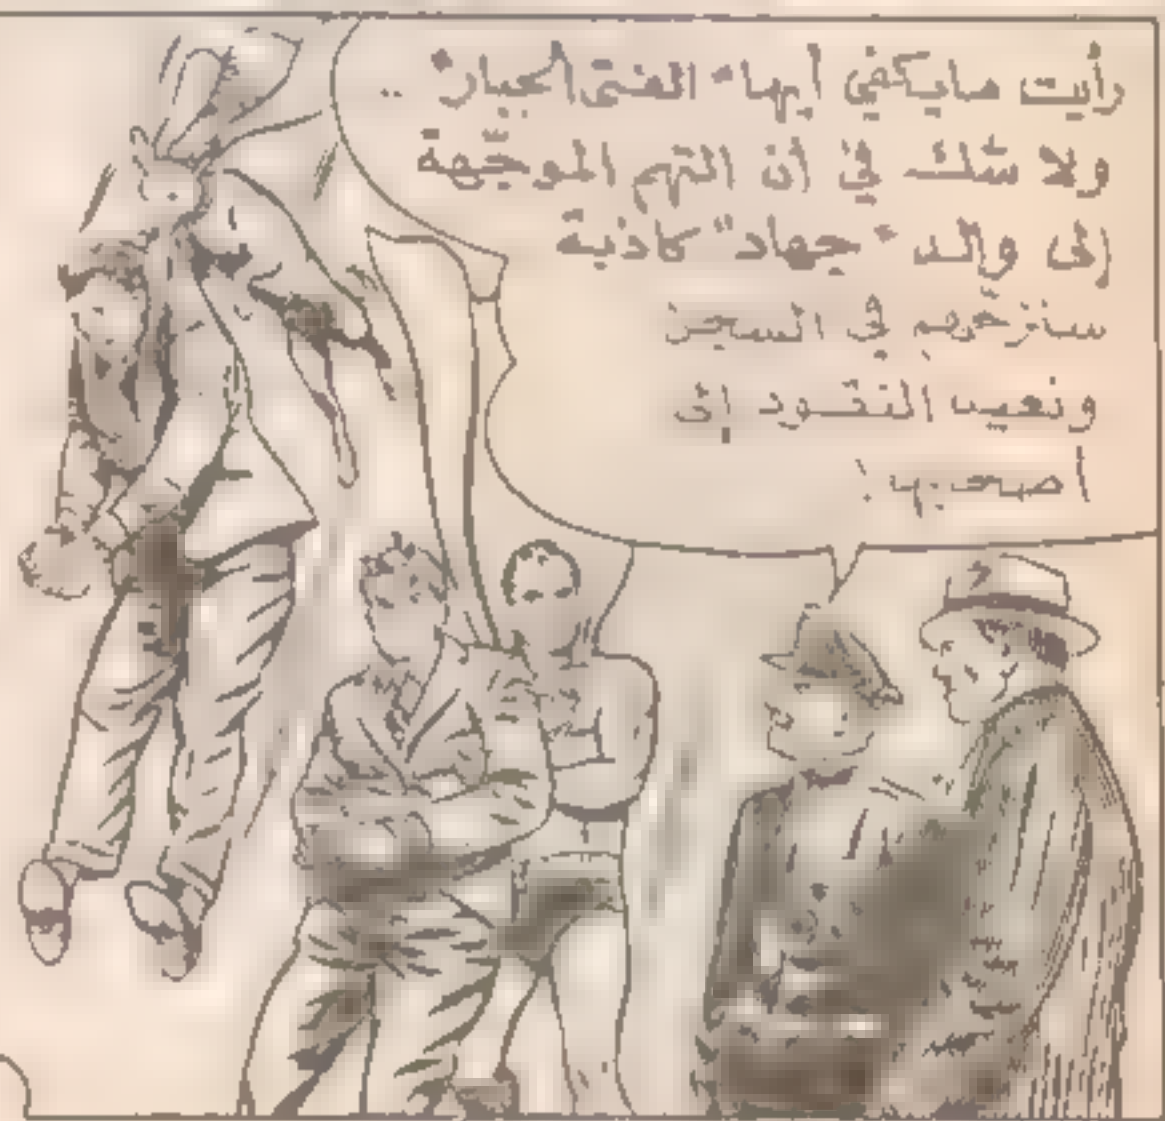 رأيت مايكفي أيها "الفتى الجبار" ..
ولا شك في أن التهم الموجّهة
إلى والد "جهاد" كاذبة
سنزجّهم في السجن
ونعيد النقود إلى
أصحابها !